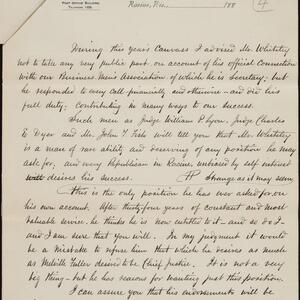 POST OFFICE BUILDING,
Racine, Wis. 188
4
During this year's Canvass I advised Mr. Whiteley
not to take any very public part, on account of his official Connection
with our Business Men's Association of which he is Secretary; but
he responded to every call financially and otherwise - and did his
full duty; Contributing in many ways to our success.
Such men as Judge William P. Lyon, Judge Charles
E. Dyer and Mr. John T. Fish will tell you that Mr. Whiteley
is a man of rare ability and deserving of any position he may
ask for, and every Republican in Racine, unbiased by self interest
desires his success. Strange as it may seem,
this is the only position he has ever asked for, on
his own account. After thirty-four years of constant and most
valuable service, he thinks he is now entitled to it - and so do I -
and I am sure that you will. In my judgment it would
be a mistake to refuse him that which he desires as much
as Melville Fuller desired to be Chief Justice. It is not a very
big thing - but he has reasons for wanting just this position.
I can assure you that his endorsements will be